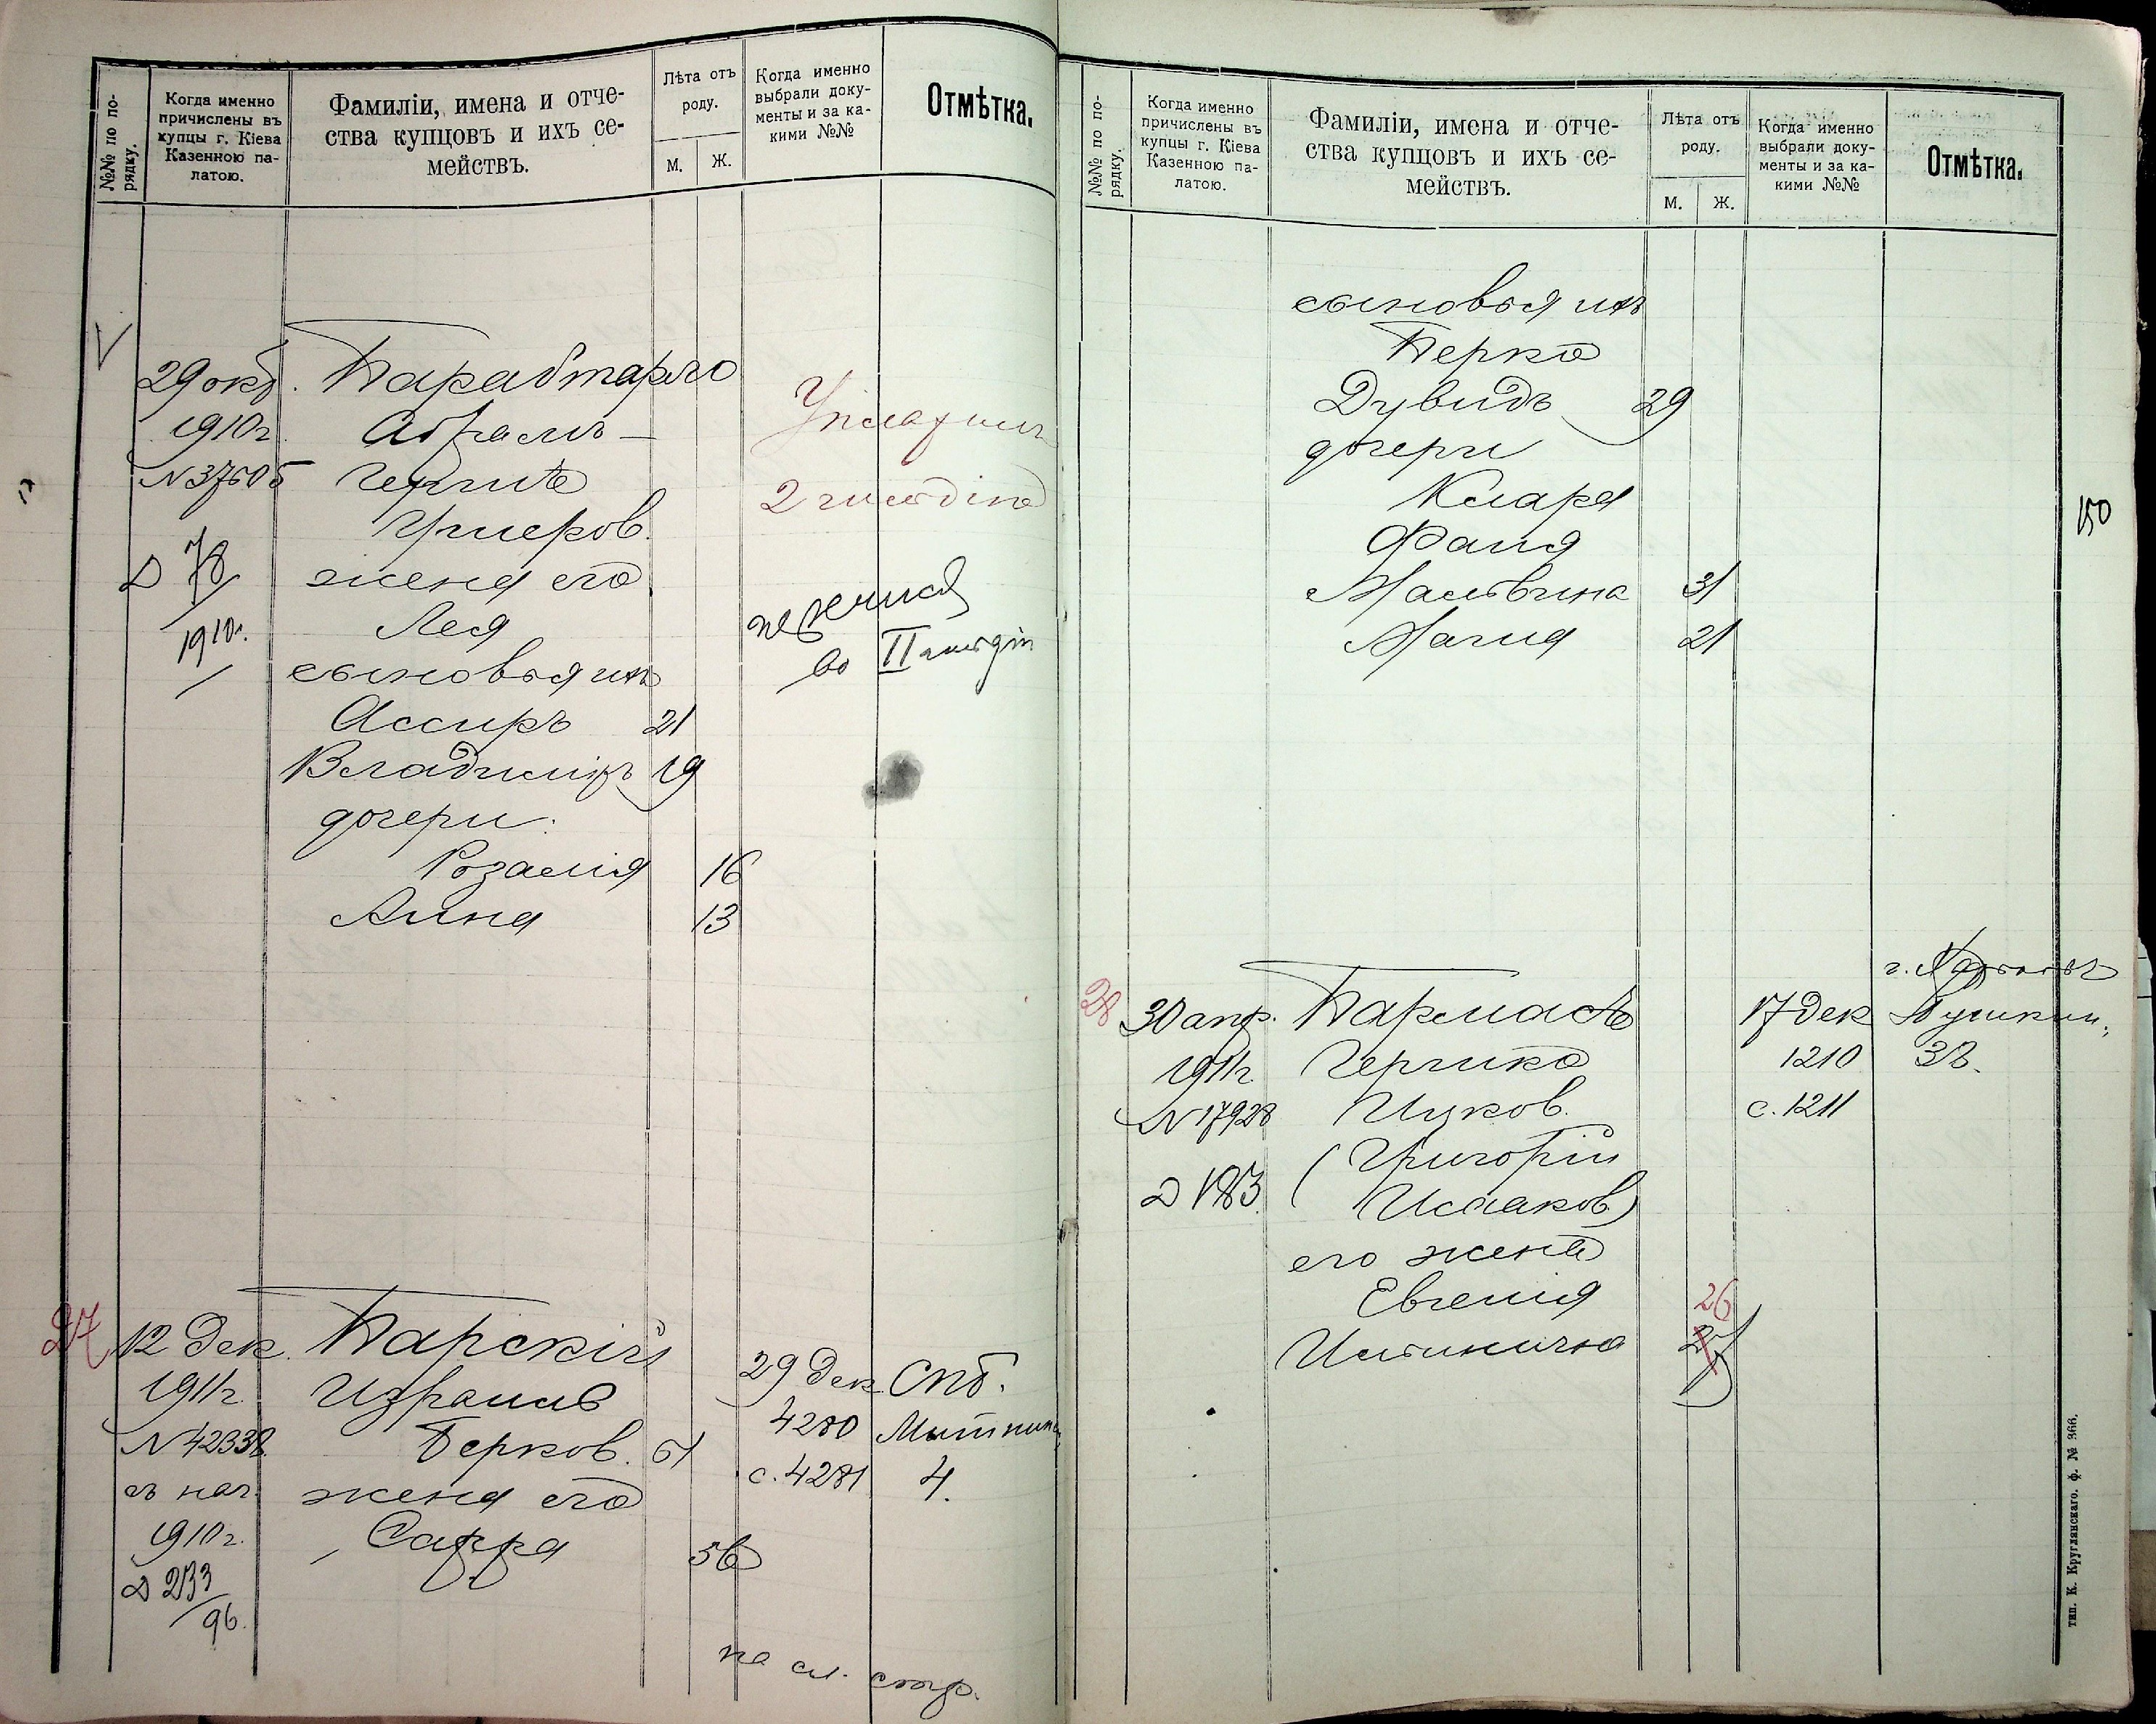 №№ по по-
рядку.
Когда именно
причислены въ
купцы г. Кіева
Казенною па-
латою.
Фамиліи, имена и отче-
ства купцовъ и ихъ се-
мействъ.
Лѣта отъ
роду.
М.
Ж.
Когда именно
выбрали доку-
менты и за ка-
кими №№
Отмѣтка.
29 окт.
1910 г.
N 37605
Д 78
1910 г.
Абрамъ-
жена его
Лея
сыновья ихъ
Ассиръ 21
Владиміръ 19
дочери:
Розалія 16
Анна 13
2 гильдію
во II гильдію
27
12 Дек.
1911 г.
N 42338
съ нач.
1910 г.
Д 233
96.
Барскій
Израиль
Берков. 61
жена его
Сарра 56
29 Дек.
4280
с. 4281
Спб.
4.
на сл. стр.
№№ по по-
рядку.
Когда именно
причислены въ
купцы г. Кіева
Казенною па-
латою.
Фамиліи, имена и отче-
ства купцовъ и ихъ се-
мействъ.
Лѣта отъ
роду.
М.
Ж.
Когда именно
выбрали доку-
менты и за ка-
кими №№
Отмѣтка.
150
сыновья ихъ
Берко
Дувидъ 29
дочери
Клара
Фаня
Мальвина 31
Мания 21
28
30 апр.
1911 г.
N 17928
Д 183
Бармасъ
Гершко
Ицков.
(Григорій
Исааков)
его жена
Евгенія 26
Ильинична 27
17 Дек
1210
с. 1211
г. Харьковъ
Пушкин.
тип. К. Круглянскаго. ф. № 366.